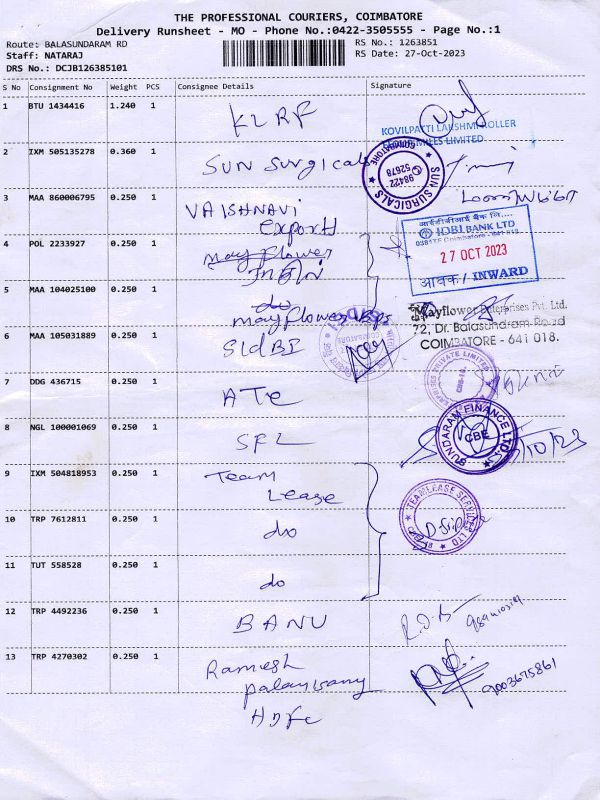 THE PROFESSIONAL COURIERS, COIMBATORE
Delivery Runsheet - MO - Phone No.:0422-3505555 - Page No.:1
Route: BALASUNDARAM RD
Staff: NATARAJ
DRS No.: DCJB126385101
RS No.: 1263851
RS Date: 27-Oct-2023
S No Consignment No Weight PCS Consignee Details Signature
1 BTU 1434416 1.240 1 KLRF
KOVILPATTI LAKSHMI ROLLER
FLOUR MILLS LIMITED
2 IXM 505135278 0.360 1 SUN SURGICALS
SUN SURGICALS
COIMBATORE
98422
52678
3 MAA 860006795 0.250 1 VAISHNAVI
Export
4 POL 2233927 0.250 1 mayflower
आईडीबीआई बैंक लि....
IDBI BANK LTD
27 OCT 2023
आवक / INWARD
5 MAA 104025100 0.250 1 do
mayflower
Mayflower Enterprises Pvt. Ltd.
72, Dr. Balasundram Road
COIMBATORE - 641 018.
6 MAA 105031889 0.250 1 SIDBI
7 DDG 436715 0.250 1 ATC
EXPRESS PRIVATE LIMITED
8 NGL 100001069 0.250 1 SFL
SUNDARAM FINANCE LTD.
CBE
9 IXM 504818953 0.250 1 Team
Lease
TEAMLEASE SERVICES LTD
10 TRP 7612811 0.250 1 do
11 TUT 558528 0.250 1 do
12 TRP 4492236 0.250 1 BANU
13 TRP 4270302 0.250 1 Ramesh
palanisamy
Hdfc
9003675861